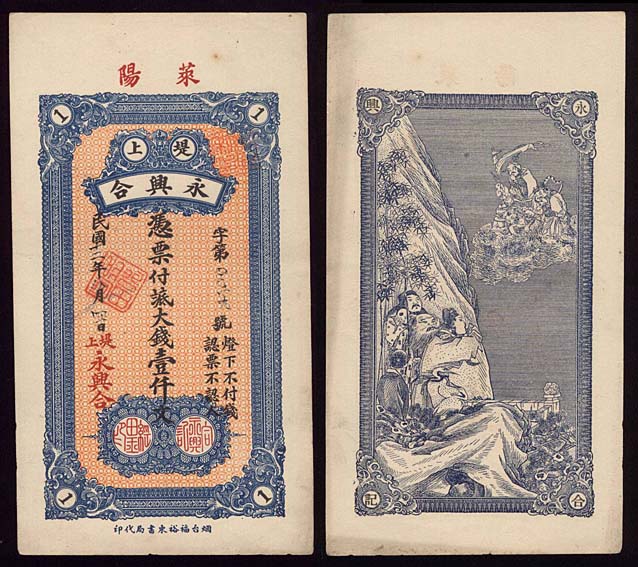 萊陽
1 1
堤上
永興合
字第 號
燈下不付錢
認票不認人
憑票付 大錢壹仟文
民國 年 月 日
堤上永興合
1 1
烟台福裕東書局代印
永興
合記